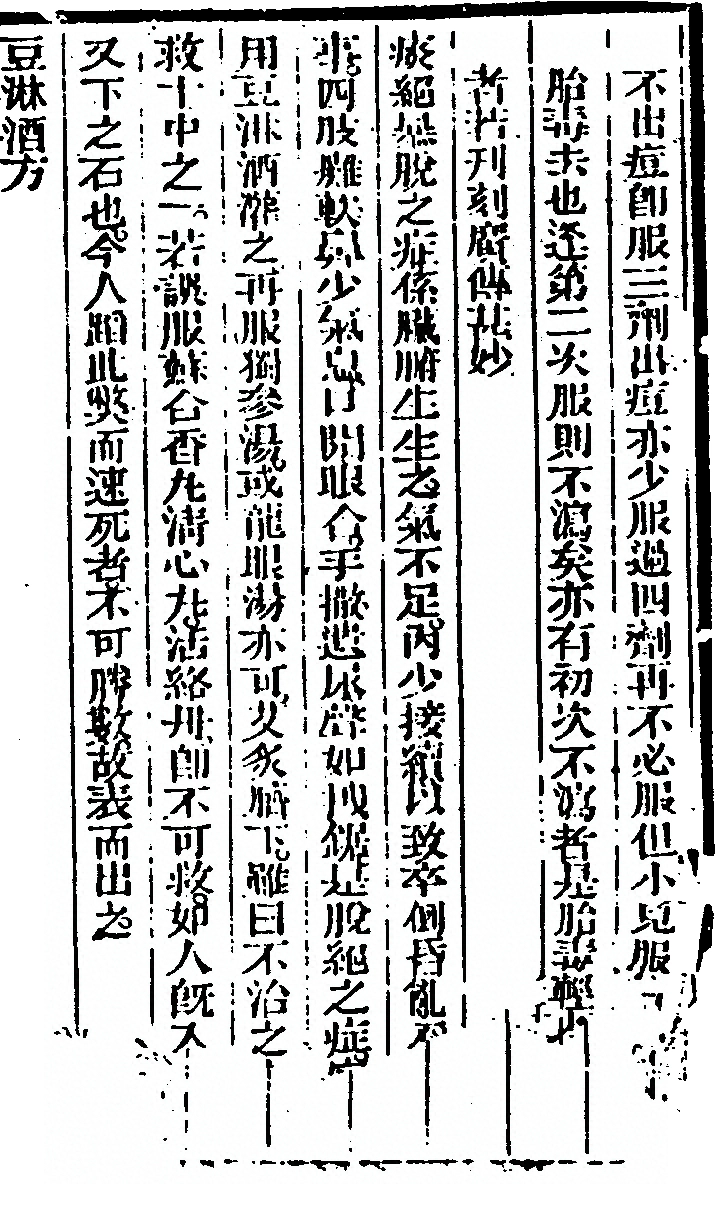 不出痘卽服三劑出痘亦少服過四劑再不必服但小兒服
胎毒未也逐第二次服則不瀉矣亦有初次不瀉者是胎毒輕也
者若刊刻廣傳甚妙
痰絕暴脫之症係臟腑生生之氣不足內少接續以致卒倒昏亂不
事四肢癱軟鼻少氣息口開眼合手撒遺尿聲如拽鋸是脫絕之症
用豆淋酒灌之再服獨參湯或龍眼湯亦可艾灸臍下雖曰不治之
救十中之一若誤服蘇合香丸淸心丸活絡丹卽不可救如人旣入
又下之石也今人蹈此弊而速死者不可勝數故表而出之
豆淋酒方